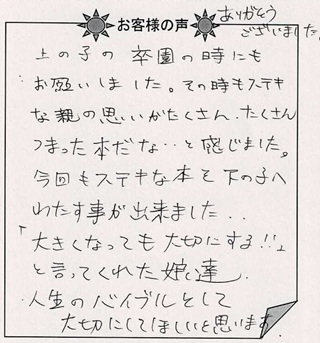 お客様の声
ありがとう
ございました。
上の子の卒園の時にも
お願いしました。その時もステキ
な親の思いがたくさん、たくさん
つまった本だな・・と感じました。
今回もステキな本を下の子へ
わたす事が出来ました・・
「大きくなっても大切にする!!」
と言ってくれた娘達。
人生のバイブルとして
大切にしてほしいと思います。